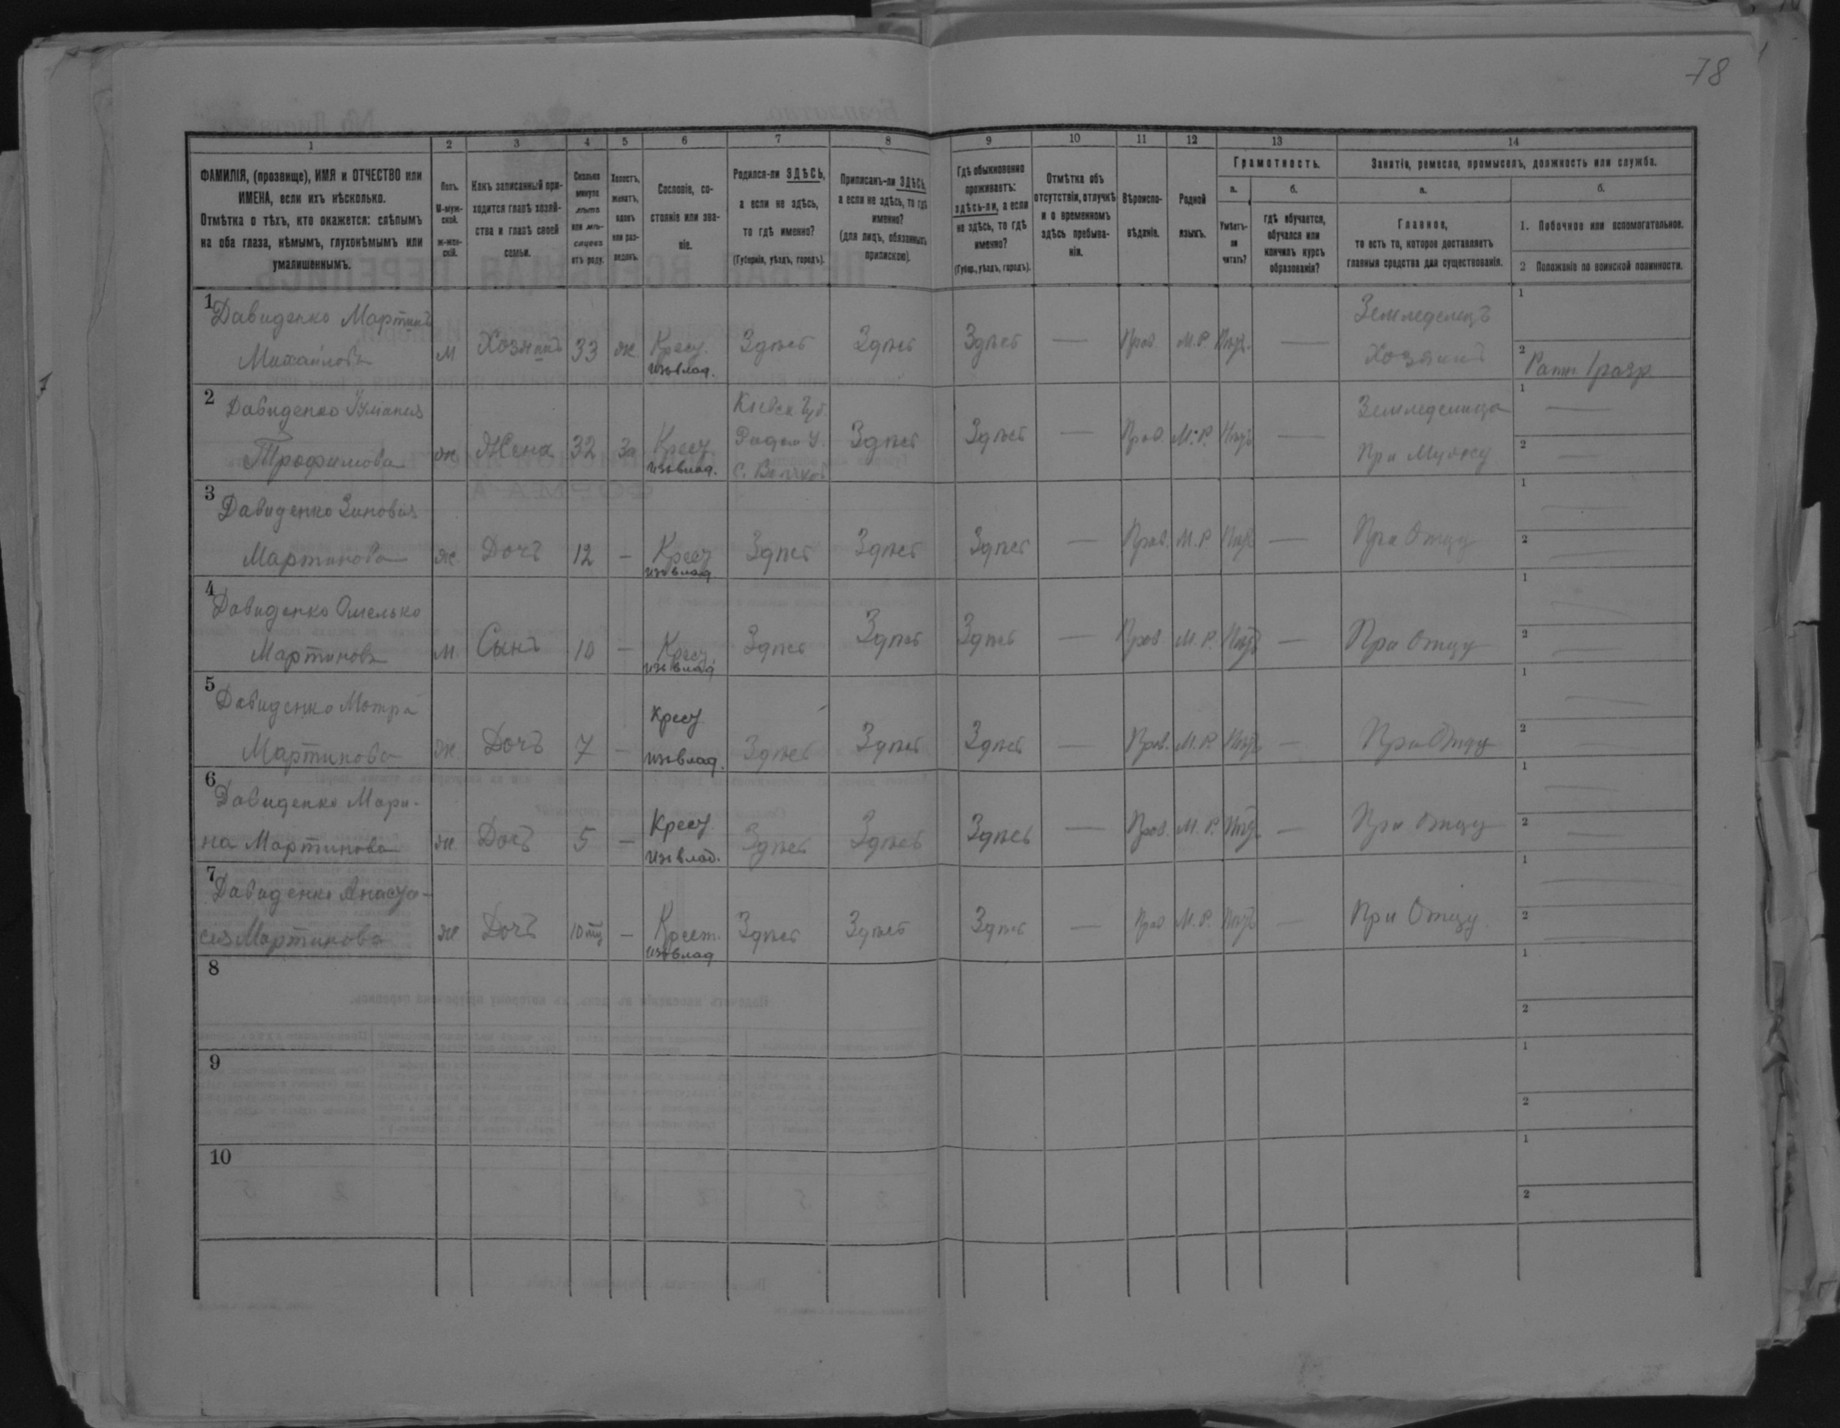 78
1 2 3 4 5 6 7 8 9 10 11 12 13 14
ФАМИЛІЯ, (прозвище), ИМЯ и ОТЧЕСТВО или
ИМЕНА, если ихъ нѣсколько.
Отмѣтка о тѣхъ, кто окажется: слѣпымъ
на оба глаза, нѣмымъ, глухонѣмымъ или
умалишеннымъ.
Полъ.
М-муж-
ской.
ж-жен-
скій.
Какъ записанный при-
ходится главѣ хозяй-
ства и главѣ своей
семьи.
Сколько
минуло
лѣтъ
или мѣ-
сяцевъ
отъ роду.
Холостъ,
женатъ,
вдовъ
или раз-
веденъ.
Сословіе, со-
стояніе или зва-
ніе.
Родился-ли ЗДѢСЬ,
а если не здѣсь,
то гдѣ именно?
(Губернія, уѣздъ, городъ).
Приписанъ-ли ЗДѢСЬ,
а если не здѣсь, то гдѣ
именно?
(для лицъ, обязанныхъ
припискою).
Гдѣ обыкновенно
проживаетъ:
здѣсь-ли, а если
не здѣсь, то гдѣ
именно?
(Губер., уѣздъ, городъ).
Отмѣтка объ
отсутствіи, отлучкѣ
и о временномъ
здѣсь пребыва-
ніи.
Вѣроиспо-
вѣданіе.
Родной
языкъ.
Грамотность.
а.
Умѣетъ-
ли
читать?
б.
гдѣ обучается,
обучался или
кончилъ курсъ
образованія?
Занятіе, ремесло, промыселъ, должность или служба.
а.
Главное,
то есть то, которое доставляетъ
главныя средства для существованія.
б.
1. Побочное или вспомогательное.
2 Положеніе по воинской повинности.
1 Давиденко Мартинъ
Михайловъ
м Хозяинъ 33 ж Крест. Здѣсь Здѣсь Здѣсь — Прав. М.Р. —
из влад.
Земледелецъ
Хозяинъ
1
2 Ратн 1 разр
2 Давиденко
Трофимова
ж Жена 32 За Крест
из влад.
Киевск Губ.
У.
С.
Здѣсь Здѣсь — Прав. М.Р. —
При Мужу
1 —
2 —
3 Давиденко Зиновия
Мартинова
ж Дочъ 12 — Крест Здѣсь Здѣсь Здѣсь — Прав. М.Р —
из влад.
При Отцу
1 —
2 —
4 Давиденко Омелько
Мартиновъ
м Сынъ 10 — Крест Здѣсь Здѣсь Здѣсь — Прав М.Р. —
из влад
При Отцу
1 —
2 —
5 Давиденко Мотра
Мартинова
ж Дочъ 7 — Крест Здѣсь Здѣсь Здѣсь — Прав. М.Р. —
из влад.
При Отцу
1 —
2 —
6 Давиденко Мари-
на Мартинова
ж Дочъ 5 — Крест Здѣсь Здѣсь Здѣсь — Прав. М.Р. —
из влад.
При Отцу
1
2 —
7 Давиденко Анаста-
сия Мартинова
ж Дочъ 10 — Крест. Здѣсь Здѣсь Здѣсь — Прав М.Р. —
из влад
При Отцу
1 —
2 —
8
1
2
9
1
2
10
1
2